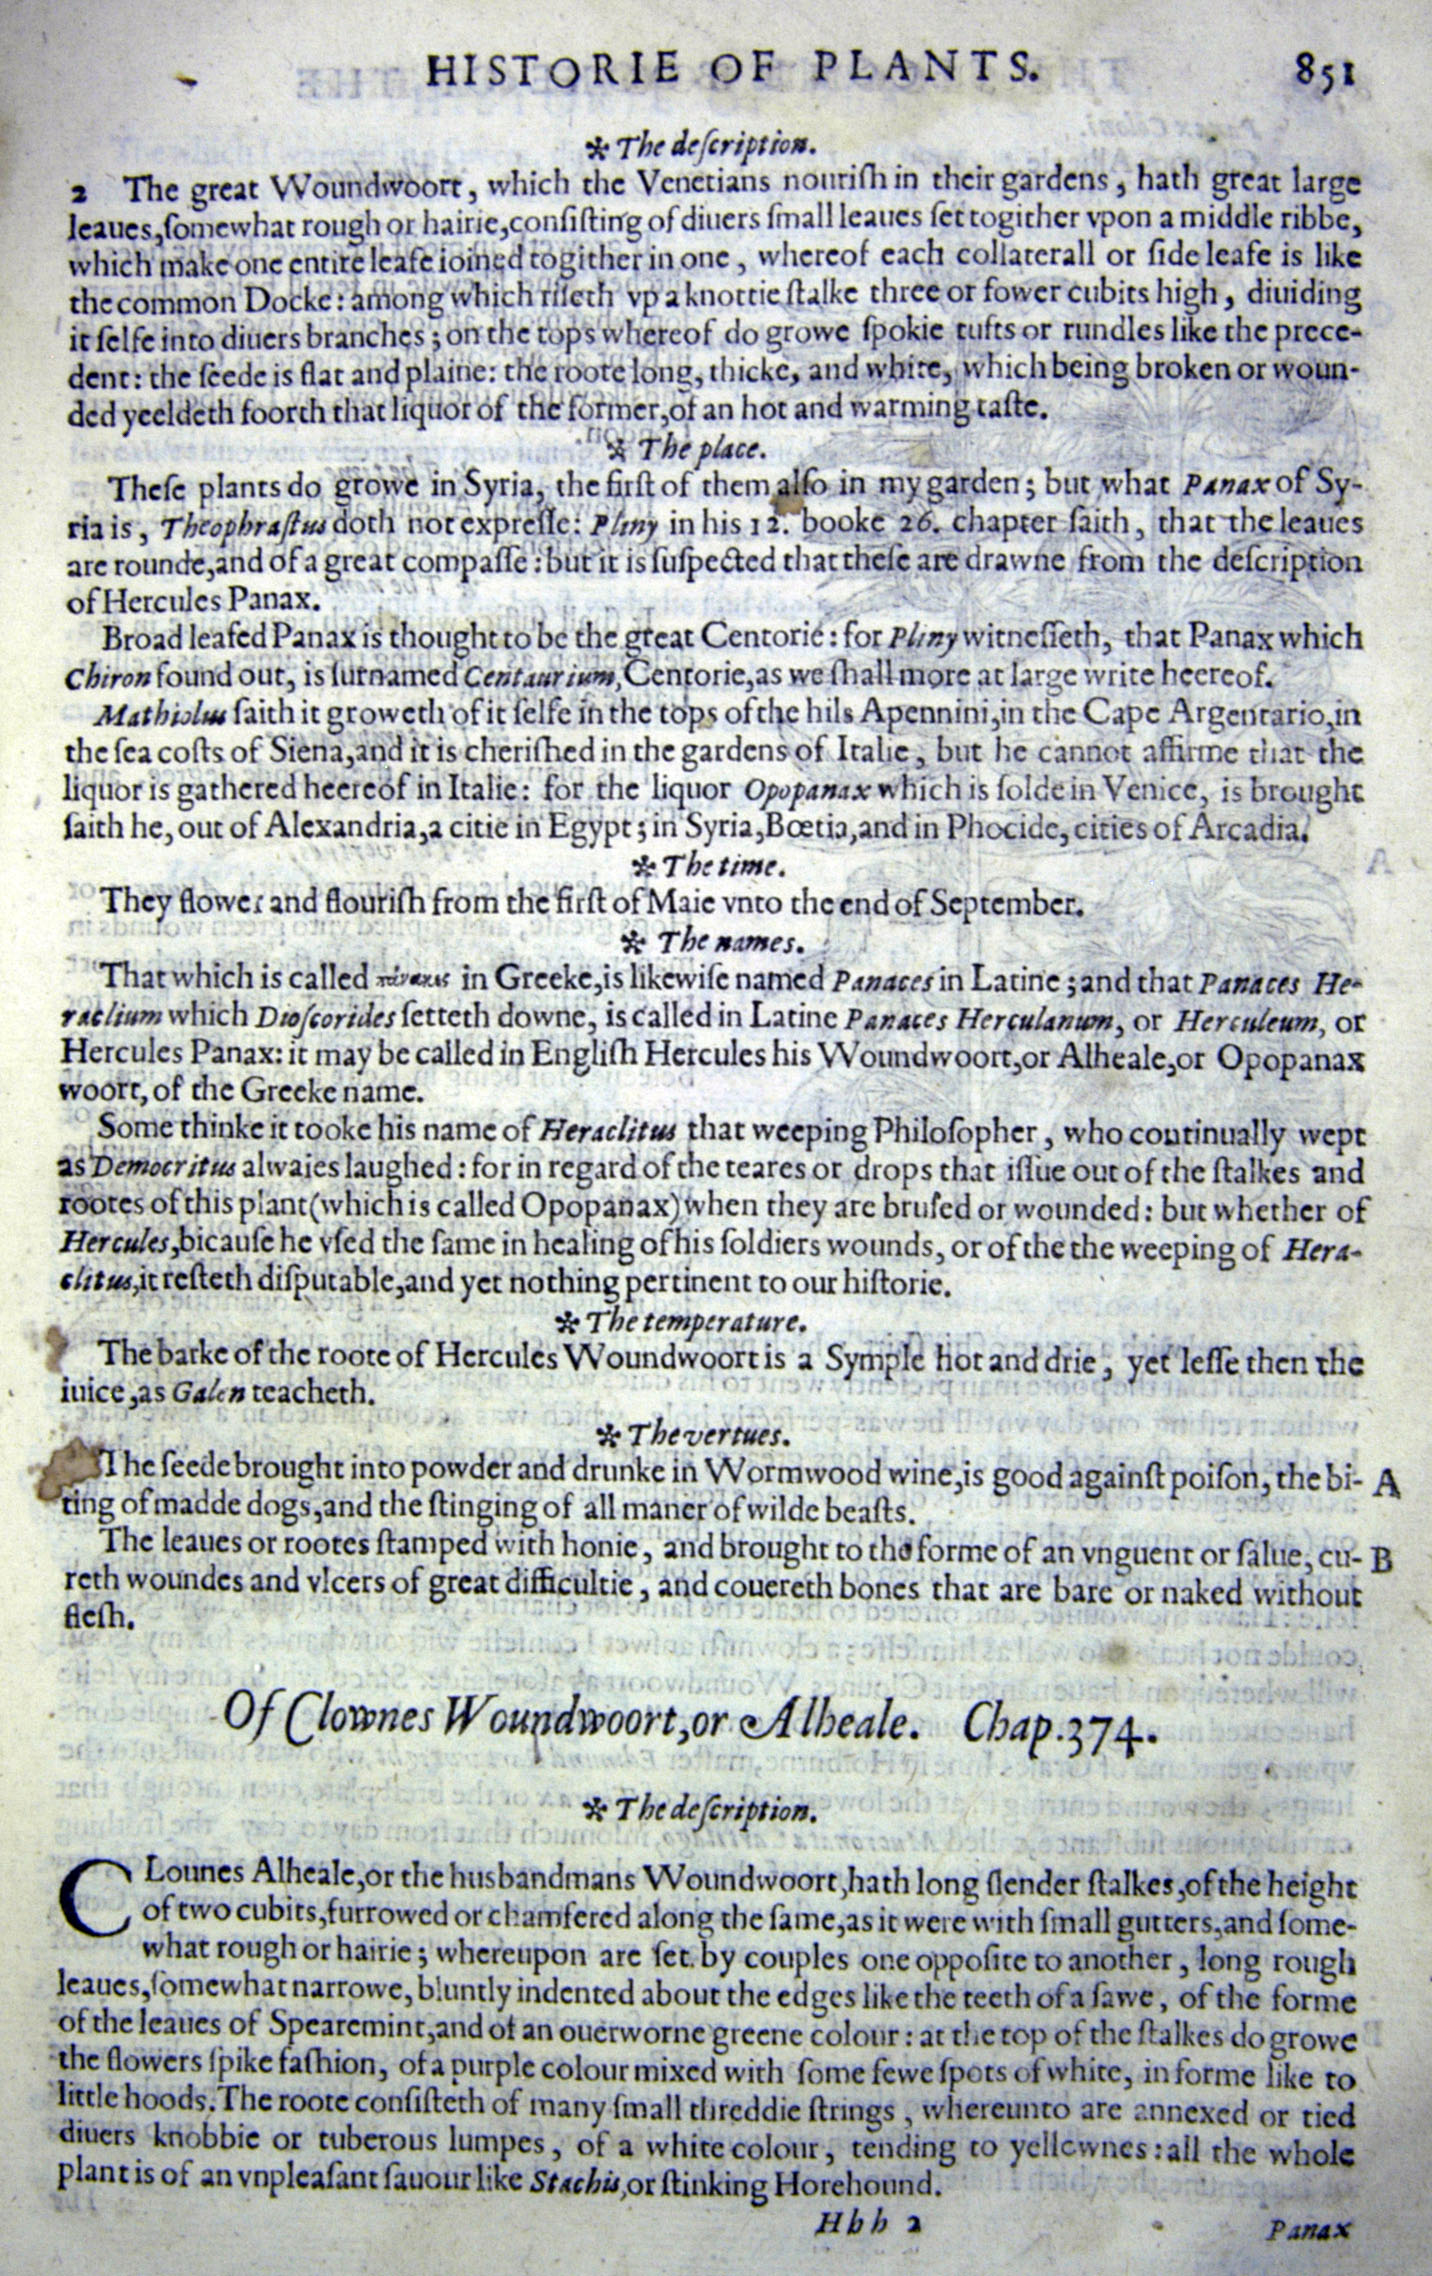 HISTORIE OF PLANTS. 851
❊ The deſcription.
2 The great Woundwoort, which the Venetians nouriſh in their gardens, hath great large
leaues, ſomewhat rough or hairie, conſiſting of diuers ſmall leaues ſet togither vpon a middle ribbe,
which make one entire leafe ioined togither in one, whereof each collaterall or ſide leafe is like
the common Docke: among which riſeth vp a knottie ſtalke three or fower cubits high, diuiding
it ſelfe into diuers branches; on the tops whereof do growe ſpokie tufts or rundles like the prece-
dent: the ſeede is flat and plaine: the roote long, thicke, and white, which being broken or woun-
ded yeeldeth foorth that liquor of the former, of an hot and warming taſte.
❊ The place.
Theſe plants do growe in Syria, the firſt of them alſo in my garden; but what Panax of Sy-
ria is, Theophraſtus doth not expreſſe: Pliny in his 12. booke 26. chapter ſaith, that the leaues
are rounde, and of a great compaſſe: but it is ſuſpected that theſe are drawne from the deſcription
of Hercules Panax.
Broad leafed Panax is thought to be the great Centorie: for Pliny witneſſeth, that Panax which
Chiron found out, is ſurnamed Centaurium, Centorie, as we ſhall more at large write heereof.
Mathiolus ſaith it groweth of it ſelfe in the tops of the hils Apennini, in the Cape Argentario, in
the ſea coſts of Siena, and it is cheriſhed in the gardens of Italie, but he cannot affirme that the
liquor is gathered heereof in Italie: for the liquor Opopanax which is ſolde in Venice, is brought
ſaith he, out of Alexandria, a citie in Egypt; in Syria, Bœtia, and in Phocide, cities of Arcadia.
❊ The time.
They flower and flouriſh from the firſt of Maie vnto the end of September.
❊ The names.
That which is called πάνακες in Greeke, is likewiſe named Panaces in Latine; and that Panaces He-
raclium which Dioſcorides ſetteth downe, is called in Latine Panaces Herculanum, or Herculeum, or
Hercules Panax: it may be called in Engliſh Hercules his Woundwoort, or Alheale, or Opopanax
woort, of the Greeke name.
Some thinke it tooke his name of Heraclitus that weeping Philoſopher, who continually wept
as Democritus alwaies laughed: for in regard of the teares or drops that iſſue out of the ſtalkes and
rootes of this plant (which is called Opopanax) when they are bruſed or wounded: but whether of
Hercules, bicauſe he vſed the ſame in healing of his ſoldiers wounds, or of the the weeping of Hera-
clitus, it reſteth diſputable, and yet nothing pertinent to our hiſtorie.
❊ The temperature.
The barke of the roote of Hercules Woundwoort is a Symple hot and drie, yet leſſe then the
iuice, as Galen teacheth.
❊ The vertues.
The ſeede brought into powder and drunke in Wormwood wine, is good againſt poiſon, the bi- A
ting of madde dogs, and the ſtinging of all maner of wilde beaſts.
The leaues or rootes ſtamped with honie, and brought to the forme of an vnguent or ſalue, cu- B
reth woundes and vlcers of great difficultie, and couereth bones that are bare or naked without
fleſh.
Of Clownes Woundwoort, or Alheale. Chap. 374.
❊ The deſcription.
CLounes Alheale, or the husbandmans Woundwoort, hath long ſlender ſtalkes, of the height
of two cubits, furrowed or chamfered along the ſame, as it were with ſmall gutters, and ſome-
what rough or hairie; whereupon are ſet by couples one oppoſite to another, long rough
leaues, ſomewhat narrowe, bluntly indented about the edges like the teeth of a ſawe, of the forme
of the leaues of Spearemint, and of an ouerworne greene colour: at the top of the ſtalkes do growe
the flowers ſpike faſhion, of a purple colour mixed with ſome fewe ſpots of white, in forme like to
little hoods. The roote conſiſteth of many ſmall threddie ſtrings, whereunto are annexed or tied
diuers knobbie or tuberous lumpes, of a white colour, tending to yellownes: all the whole
plant is of an vnpleaſant ſauour like Stachis, or ſtinking Horehound.
Hhh 2 Panax